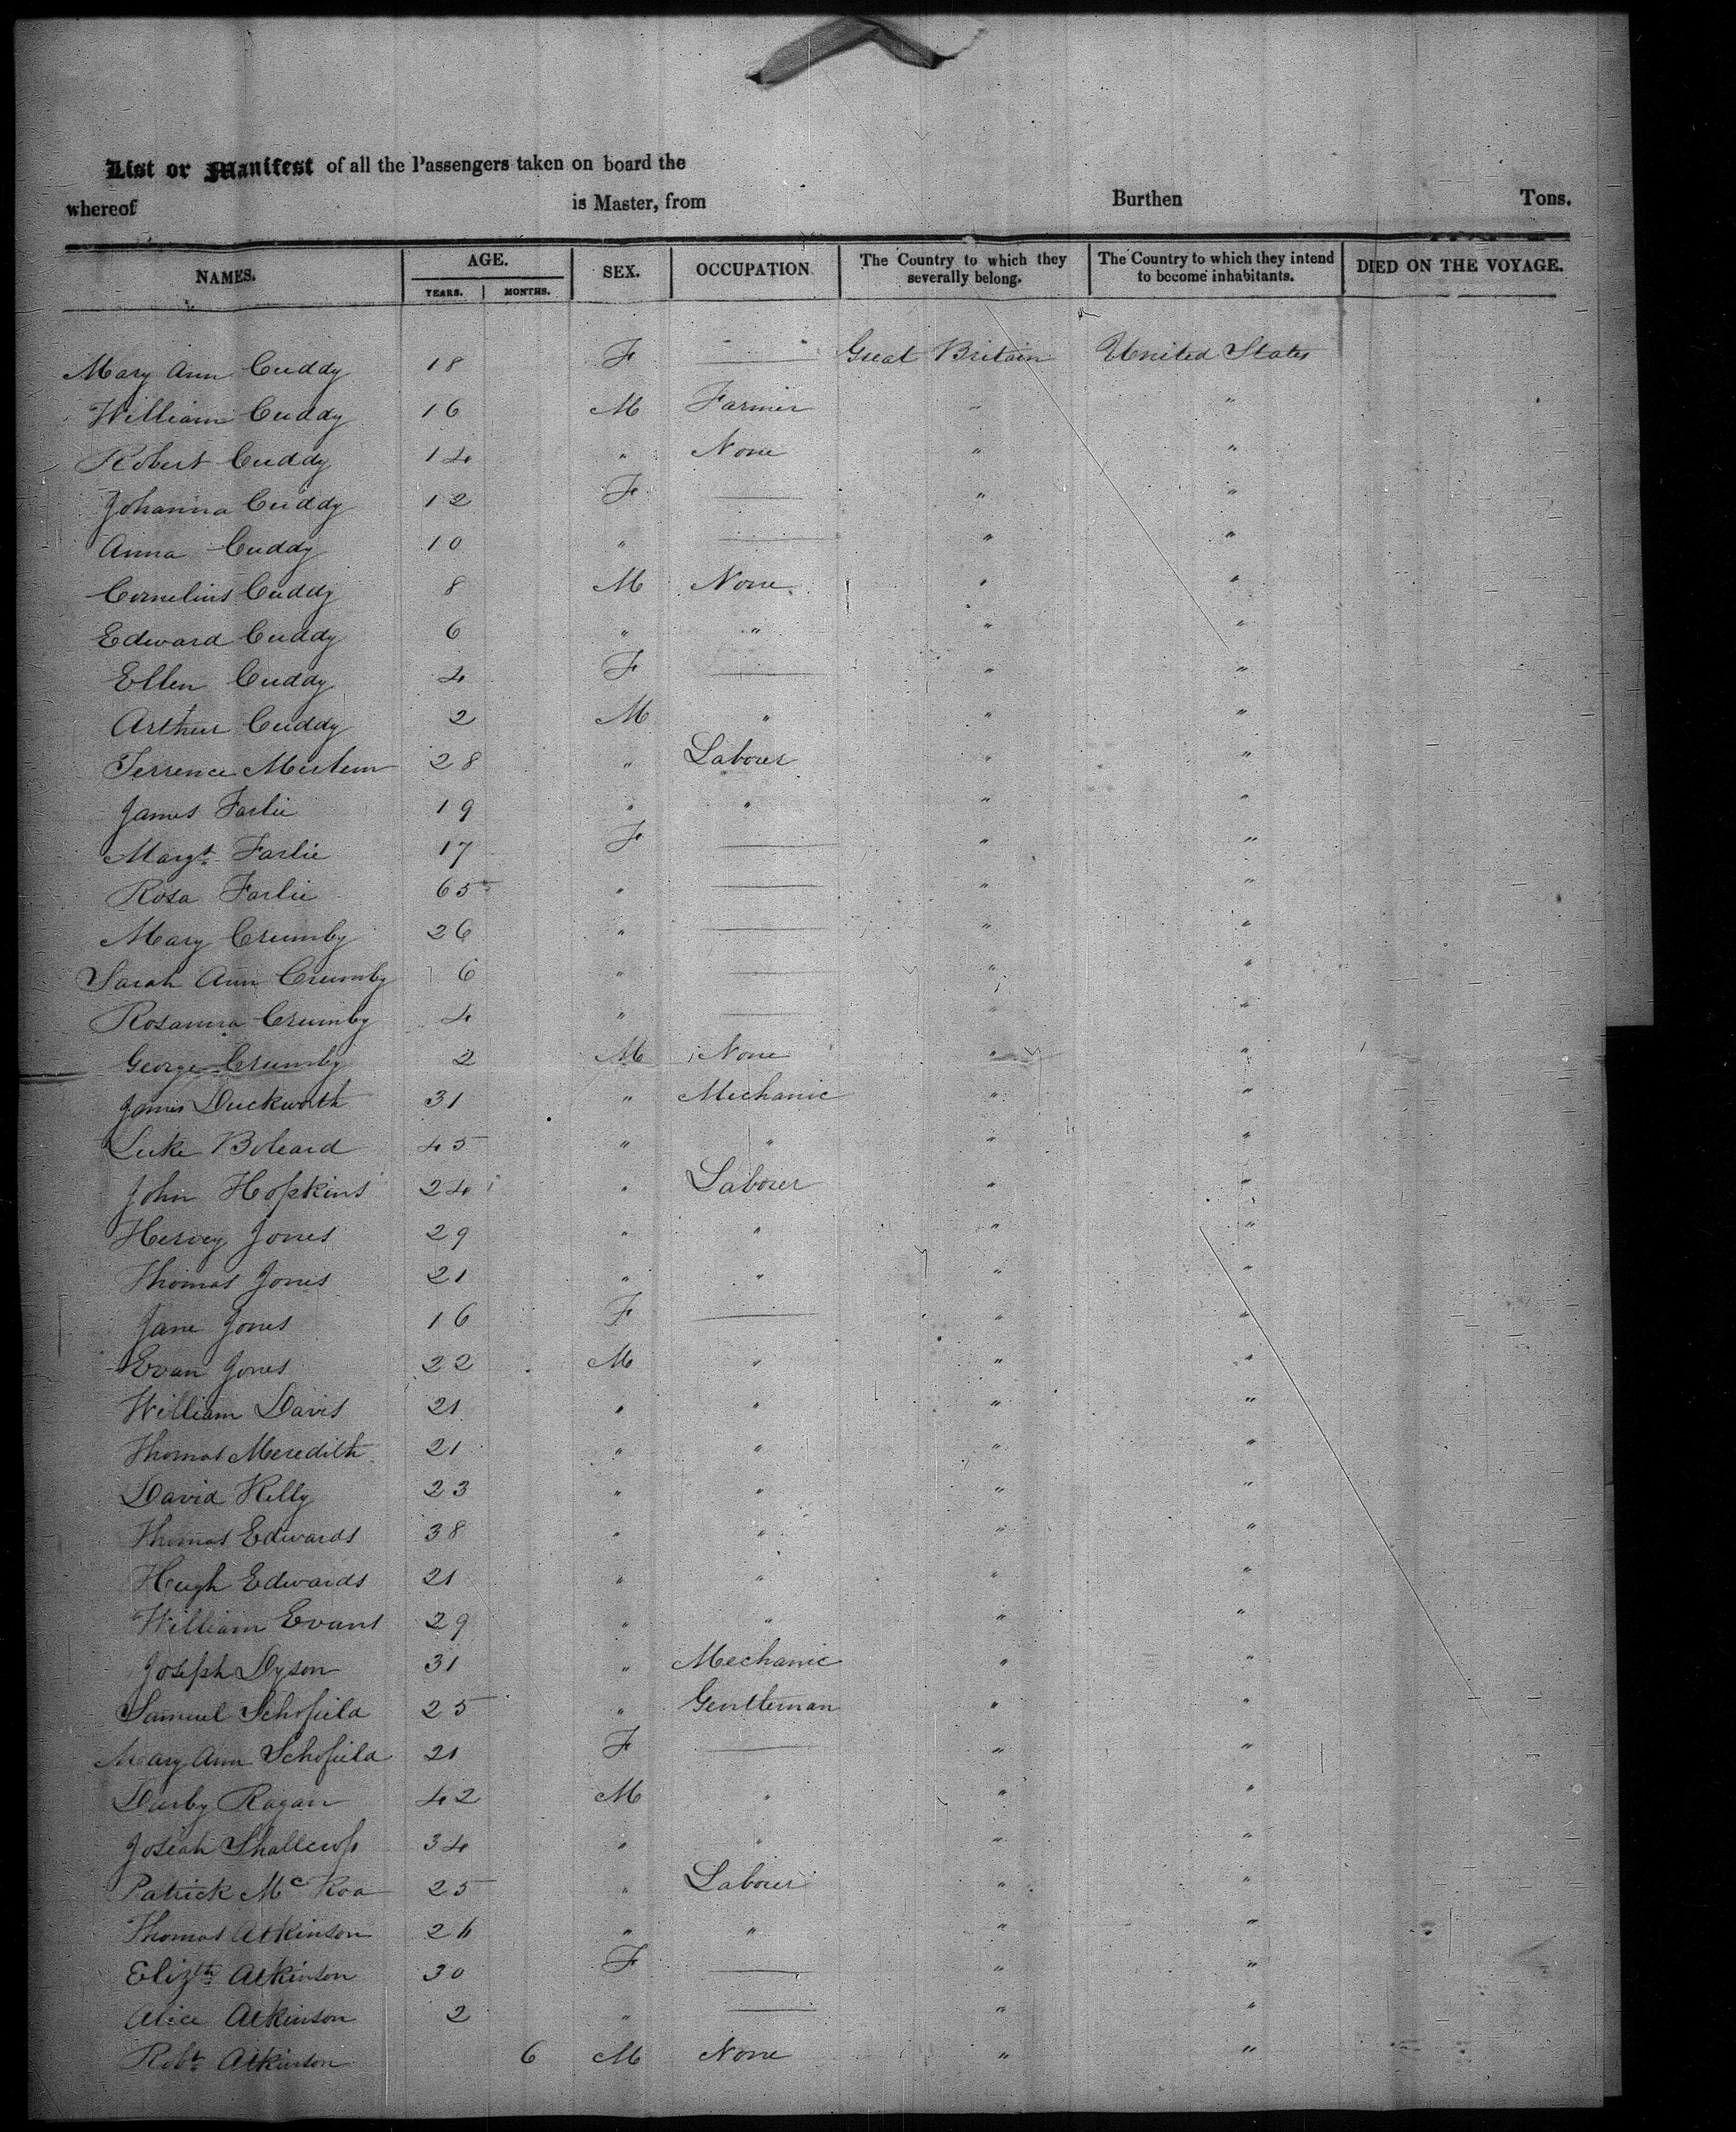 List or Manifest of all the Passengers taken on board the
whereof is Master, from Burthen Tons.
NAMES. AGE. YEARS. MONTHS. SEX. OCCUPATION. The Country to which they severally belong. The Country to which they intend to become inhabitants. DIED ON THE VOYAGE.
Mary Ann Cuddy 18 F — Great Britain United States
William Cuddy 16 M Farmer " "
Robert Cuddy 14 " None " "
Johanna Cuddy 12 F — " "
Anna Cuddy 10 " — " "
Cornelius Cuddy 8 M None " "
Edward Cuddy 6 " " " "
Ellen Cuddy 4 F — " "
Arthur Cuddy 2 M " " "
Terrence 28 " Labourer " "
James Farlie 19 " " " "
Margt Farlie 17 F — " "
Rosa Farlie 65 " — " "
Mary Crumby 26 " — " "
Sarah Ann Crumby 6 " — " "
Rosanna Crumby 4 " — " "
George Crumby 2 M None " "
James Duckworth 31 " Mechanic " "
Luke 45 " " " "
John Hopkins 24 " Labourer " "
Hervey Jones 29 " " " "
Thomas Jones 21 " " " "
Jane Jones 16 F — " "
Evan Jones 22 M " " "
William Davis 21 " " " "
Thomas Meredith 21 " " " "
David Kelly 23 " " " "
Thomas Edwards 38 " " " "
Hugh Edwards 21 " " " "
William Evans 29 " " " "
Joseph Dyson 31 " Mechanic " "
Samuel Schofield 25 " Gentleman " "
Mary Ann Schofield 21 F — " "
Darby Ragan 42 M " " "
Josiah Shallcross 34 " " " "
Patrick McKoa 25 " Labourer " "
Thomas Atkinson 26 " " " "
Elizth Atkinson 30 F — " "
Alice Atkinson 2 " — " "
Robt Atkinson 6 M None " "